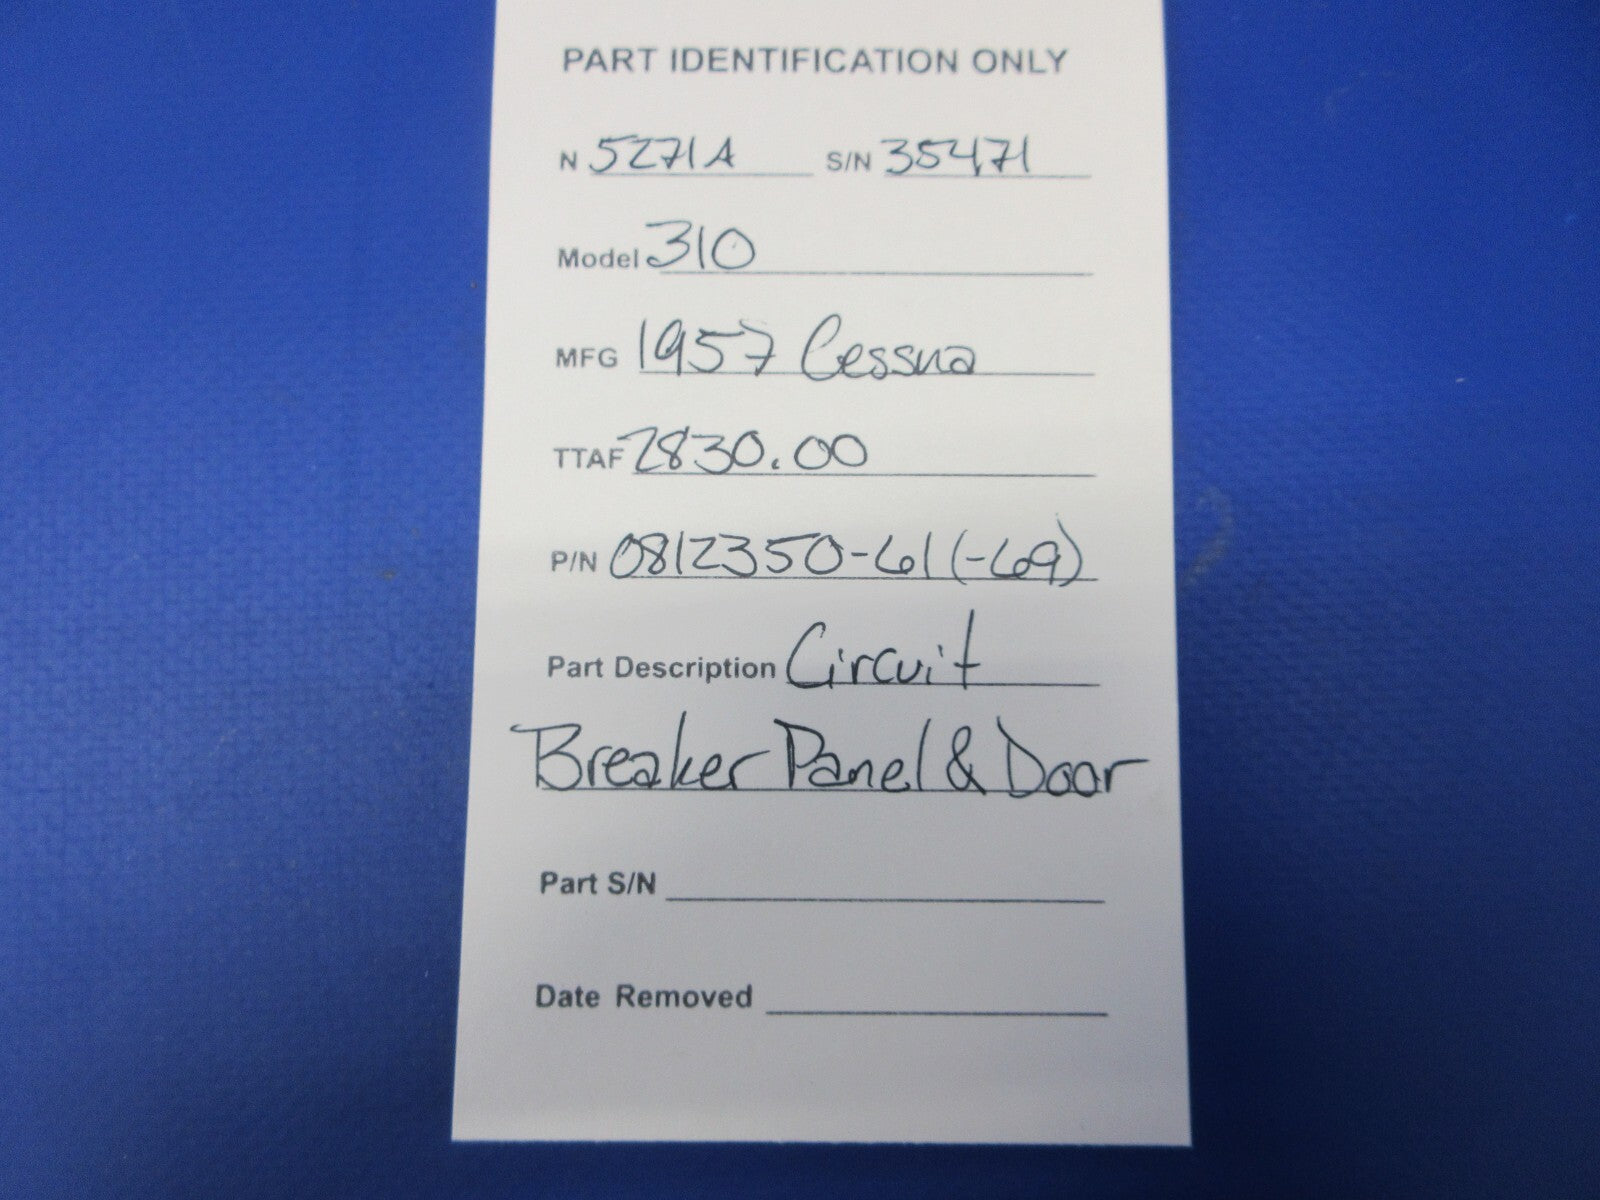 PART IDENTIFICATION ONLY
N 5271A S/N 35471
Model 310
MFG 1957 Cessna
TTAF 2830.00
P/N 0812350-61 (-69)
Part Description Circuit
Breaker Panel & Door
Part S/N
Date Removed